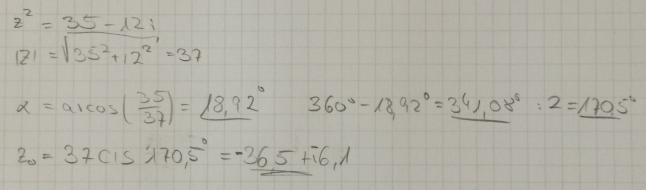 z² = 35 - 12i
|z| = √35² + 12² = 37
α = arcos(35/37) = 18,92° 360° - 18,92° = 341,08° : 2 = 170,5°
z₀ = 37 cis 170,5° = -36,5 + i6,1